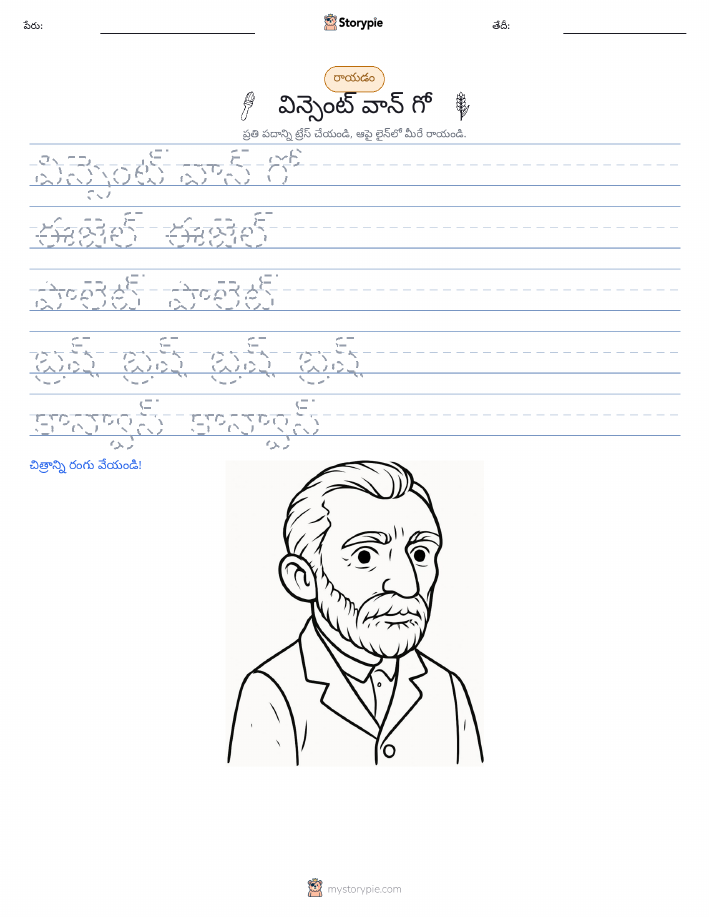 పేరు:
Storypie
తేదీ:
రాయడం
విన్సెంట్ వాన్ గో
ప్రతి పదాన్ని ట్రేస్ చేయండి, ఆపై లైన్‌లో మీరే రాయండి.
విన్సెంట్ వాన్ గో
ఈజెల్ ఈజెల్
పాలెట్ పాలెట్
బ్రష్ బ్రష్ బ్రష్ బ్రష్
కాన్వాస్ కాన్వాస్
చిత్రాన్ని రంగు వేయండి!
mystorypie.com